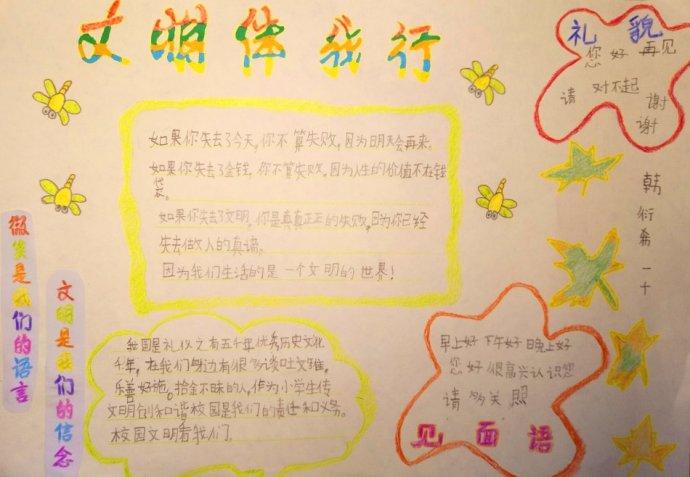 文明伴我行
礼貌
您好 再见
请 对不起 谢
谢
如果你失去了今天,你不算失败,因为明天会再来。
如果你失去了金钱,你不算失败,因为人生的价值不在钱
袋。
如果你失去了文明,你是真真正正的失败,因为你已经
失去做人的真谛。
因为我们生活的是一个文明的世界!
韩衍希一十
微笑是我们的语言
文明是我们的信念
我国是礼仪之有五千年优秀历史文化
千年,在我们身边有很多谈吐文雅,
乐善好施。拾金不昧的人,作为小学生传
文明创和谐校园是我们的责任和义务。
校园文明看我们。
早上好 下午好 晚上好
您好 很高兴认识您
请多关照
见面语